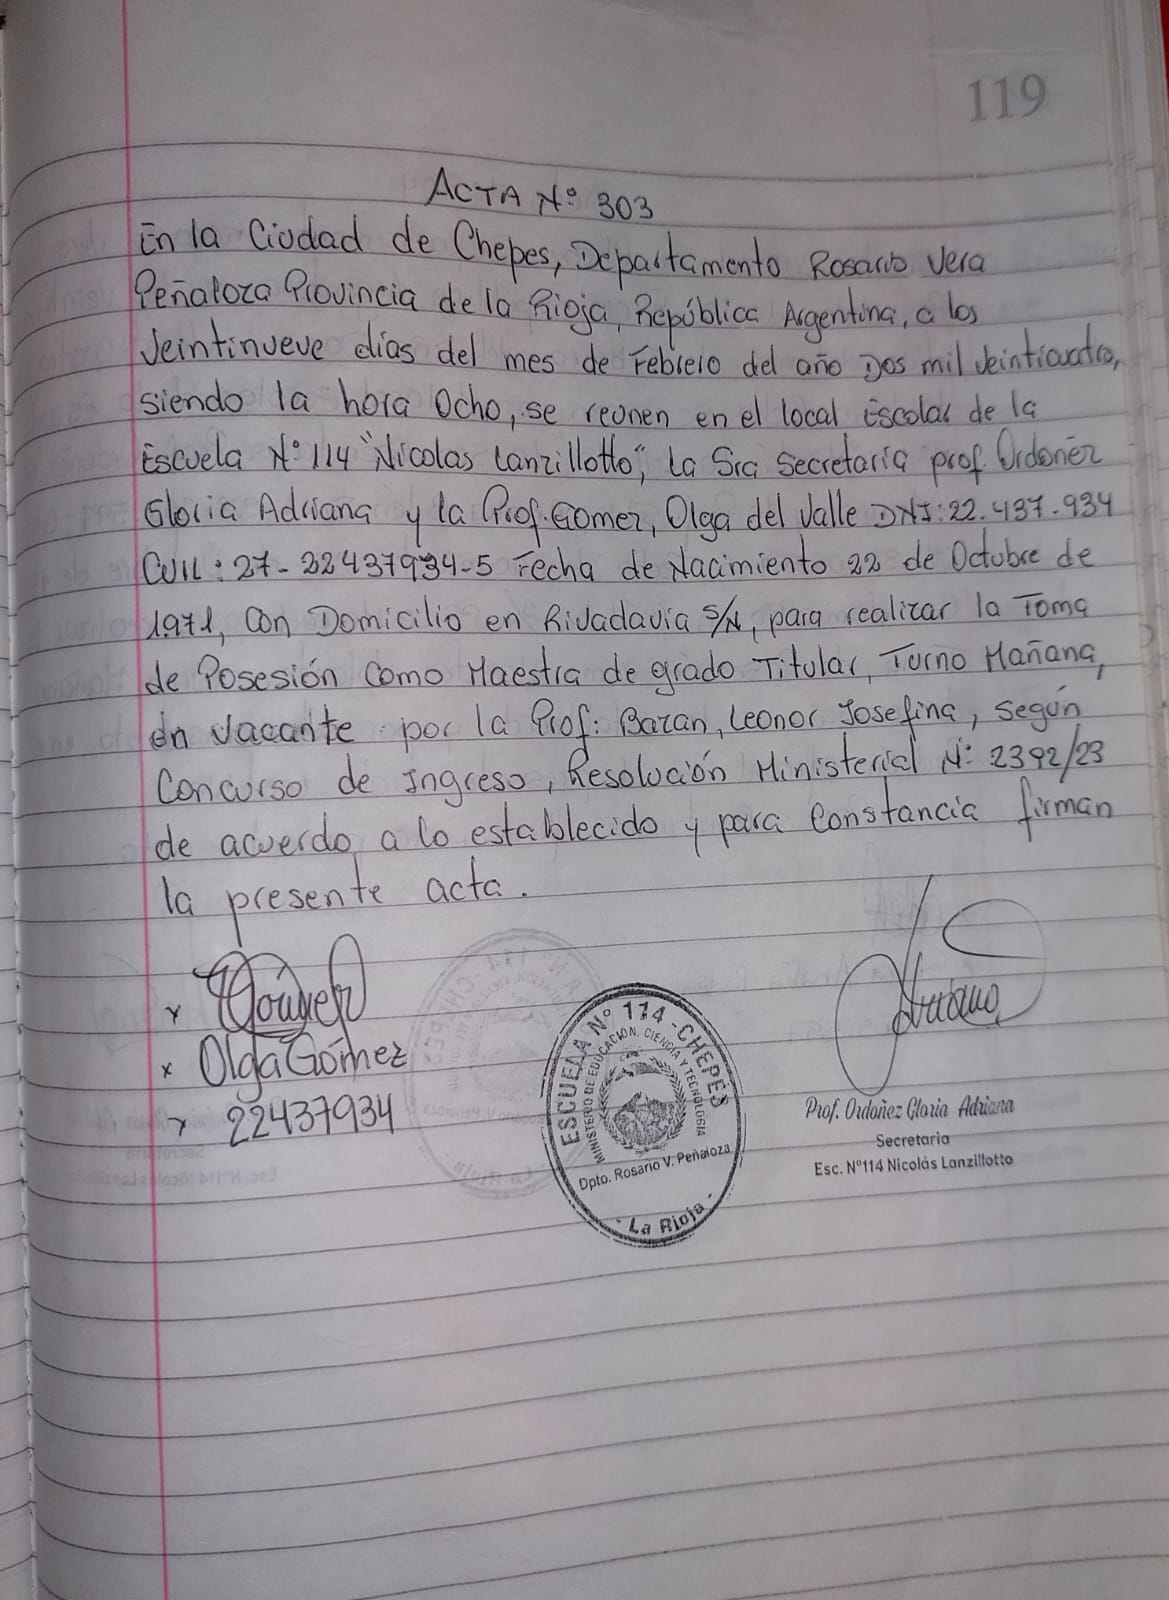 119
ACTA N° 303
En la Ciudad de Chepes, Departamento Rosario Vera
Peñaloza Provincia de la Rioja, República Argentina, a los
Veintinueve días del mes de Febrero del año Dos mil Veinticuatro,
siendo la hora Ocho, se reunen en el local Escolar de la
Escuela N° 114 "Nicolas Lanzillotto", La Sra Secretaria prof. Ordoñez
Gloria Adriana y la Prof. Gomez, Olga del Valle DNI: 22.437.934
CUIL: 27-22437934-5 Fecha de Nacimiento 22 de Octubre de
1971, Con Domicilio en Rivadavia S/N, para realizar la Toma
de Posesión Como Maestra de grado Titular, Turno Mañana,
en Vacante por la Prof: Bazan, Leonor Josefina, Según
Concurso de Ingreso, Resolución Ministerial N° 2392/23
de acuerdo a lo establecido y para Constancia firman
la presente acta.
x
x Olga Gómez
x 22437934
ESCUELA N° 114 - CHEPES
MINISTERIO DE EDUCACIÓN, CIENCIA Y TECNOLOGIA
Dpto. Rosario V. Peñaloza
- La Rioja -
Prof. Ordoñez Gloria Adriana
Secretaria
Esc. N°114 Nicolás Lanzillotto